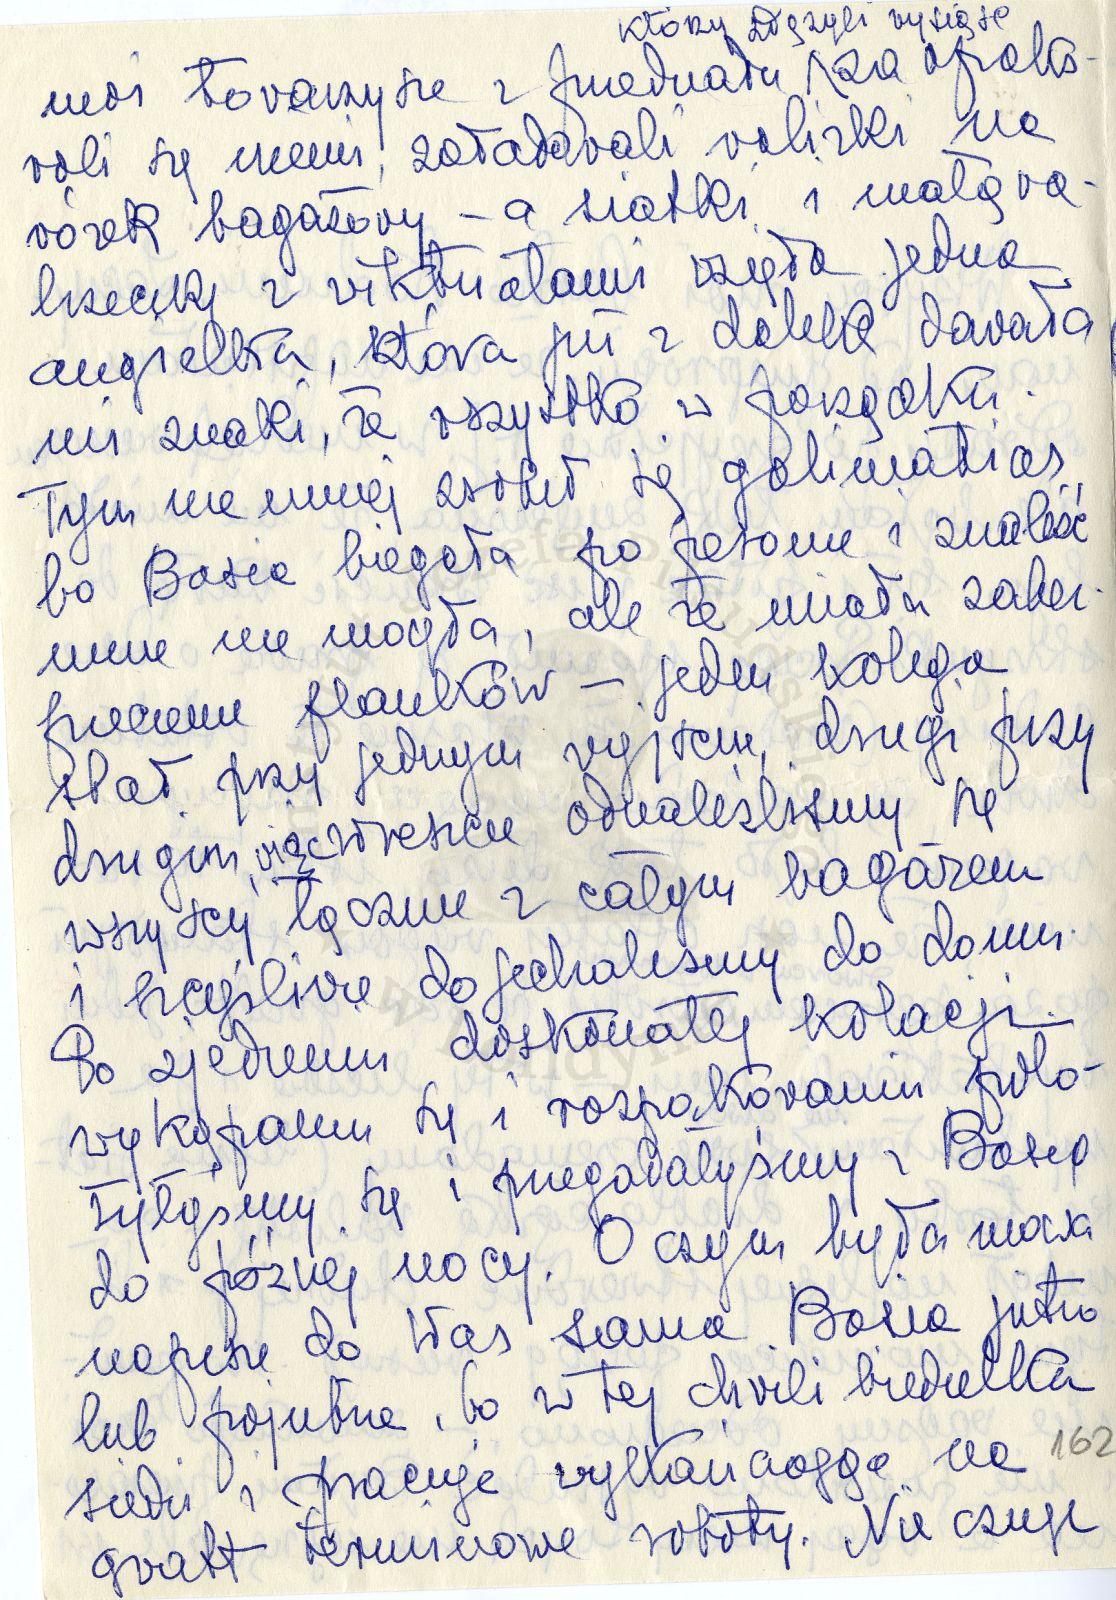 którzy zdążyli wysiąść
moi towarzysze z przedziału (zaopieko-
wali się mną, załadowali walizki na
wózek bagażowy – a siatki i małą wa-
lizeczkę z wiktuałami wzięła jedna
angielka, która już z daleka dawała
mi znaki, że wszystko w porządku.
Tym nie mniej zrobił się galimatias,
bo Basia biegała po peronie i znaleźć
mnie nie mogła, ale że miała zabez-
pieczenie flanków – jeden kolega
stał przy jednym wyjściu, drugi przy
drugim, więc wreszcie odnaleźliśmy się
wszyscy łącznie z całym bagażem
i szczęśliwie dojechaliśmy do domu.
Po zjedzeniu doskonałej kolacji
wykąpaniu się i rozpakowaniu poło-
żyłyśmy się i przegadałyśmy z Basią
do późnej nocy. O czym była mowa
napisze do Was sama Basia jutro
lub pojutrze, bo w tej chwili biedulka
siedzi i pracuje wykańczając na
gwałt terminowe roboty. Nie czuję
162